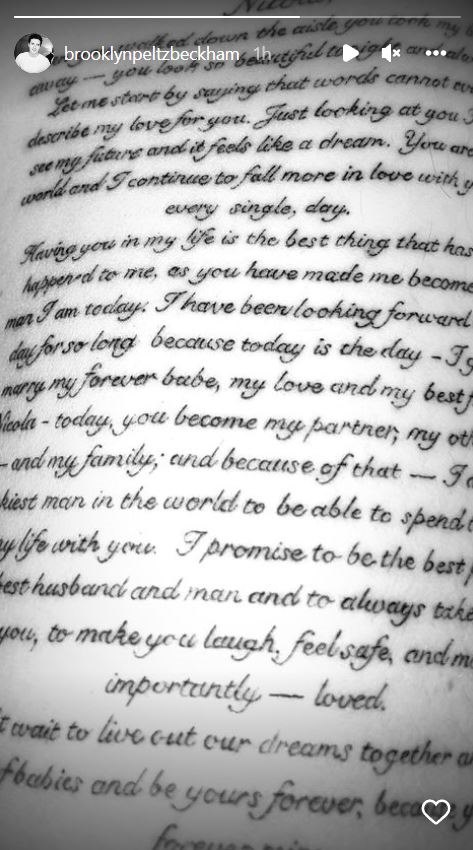 brooklynpeltzbeckham 1h
walked down the aisle, you took my b
away — you look so beautiful tonight
Let me start by saying that words cannot ev
describe my love for you. Just looking at you I
see my future and it feels like a dream. You are
world and I continue to fall more in love with y
every single, day.
Having you in my life is the best thing that has
happened to me, as you have made me become
man I am today. I have been looking forward
day for so long because today is the day – I g
marry my forever babe, my love and my best f
Nicola – today, you become my partner, my oth
– and my family; and because of that — I a
kiest man in the world to be able to spend
y life with you. I promise to be the best
est husband and man and to always take
you, to make you laugh, feel safe, and m
importantly — loved.
t wait to live out our dreams together a
f babies and be yours forever, because y
forever